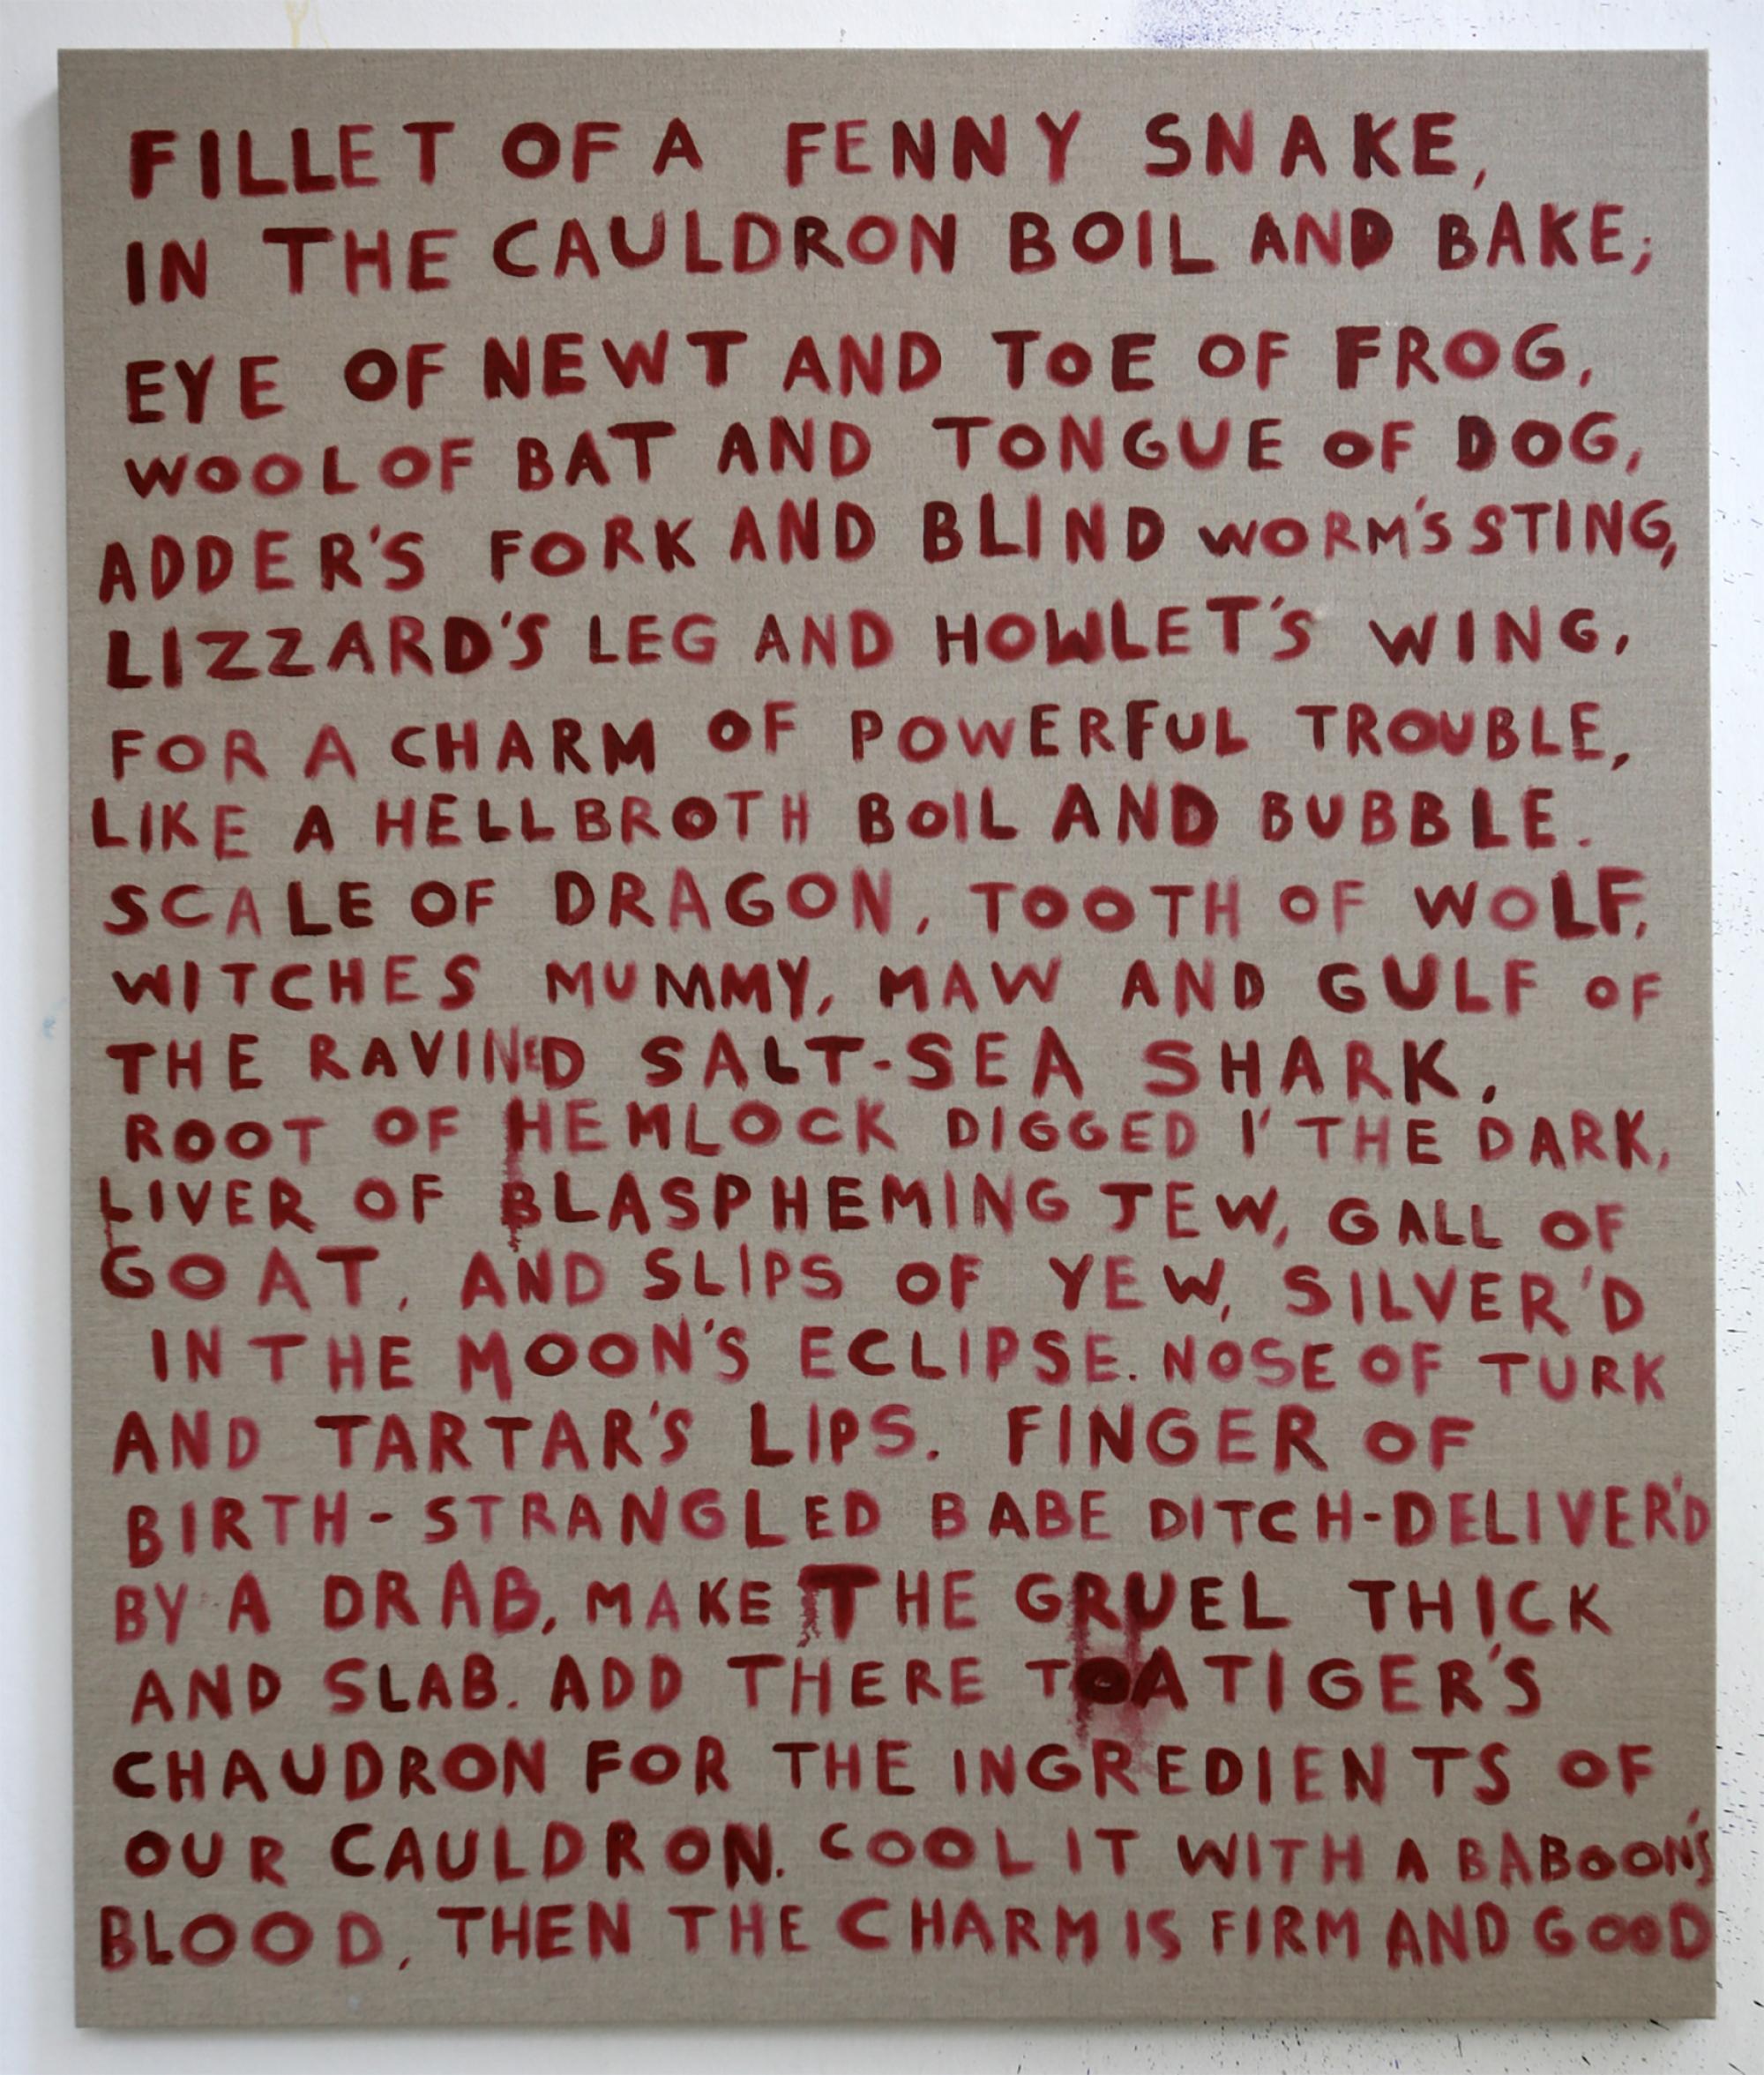 FILLET OF A FENNY SNAKE,
IN THE CAULDRON BOIL AND BAKE;
EYE OF NEWT AND TOE OF FROG,
WOOL OF BAT AND TONGUE OF DOG,
ADDER'S FORK AND BLIND WORM'S STING,
LIZZARD'S LEG AND HOWLET'S WING,
FOR A CHARM OF POWERFUL TROUBLE,
LIKE A HELLBROTH BOIL AND BUBBLE.
SCALE OF DRAGON, TOOTH OF WOLF,
WITCHES MUMMY, MAW AND GULF OF
THE RAVINED SALT-SEA SHARK,
ROOT OF HEMLOCK DIGGED I' THE DARK,
LIVER OF BLASPHEMING JEW, GALL OF
GOAT, AND SLIPS OF YEW, SILVER'D
IN THE MOON'S ECLIPSE. NOSE OF TURK
AND TARTAR'S LIPS. FINGER OF
BIRTH-STRANGLED BABE DITCH-DELIVER'D
BY A DRAB, MAKE THE GRUEL THICK
AND SLAB. ADD THERE TO A TIGER'S
CHAUDRON FOR THE INGREDIENTS OF
OUR CAULDRON. COOL IT WITH A BABOON'S
BLOOD, THEN THE CHARM IS FIRM AND GOOD